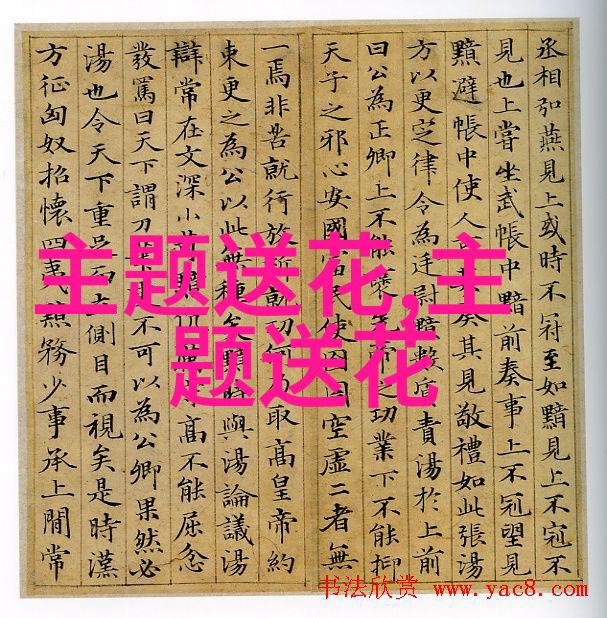 丞相弘燕見上或時不冠至如黯見上不冠不
見也上嘗坐武帳中黯前奏事上不冠望見
黯避帳中使人其奏其見敬禮如此張湯
方以更定律令為廷尉黯數質責湯於上前
曰公為正卿上不能帝之功業下不能抑
天子之邪心安國富民使囹圄空虛二者無
一焉非苦就行放析就功何乃取高皇帝約
束更之為公以此無種矣黯時與湯論議湯
辯常在文深小苛黯伉厲守高不能屈忿
發罵曰天下謂刀筆吏不可以為公卿果然必
湯也令天下重足而立側目而視矣是時漢
方征匈奴招懷四夷黯務少事承上間常
主题送花,主
题送花
书法欣赏 www.yac8.com